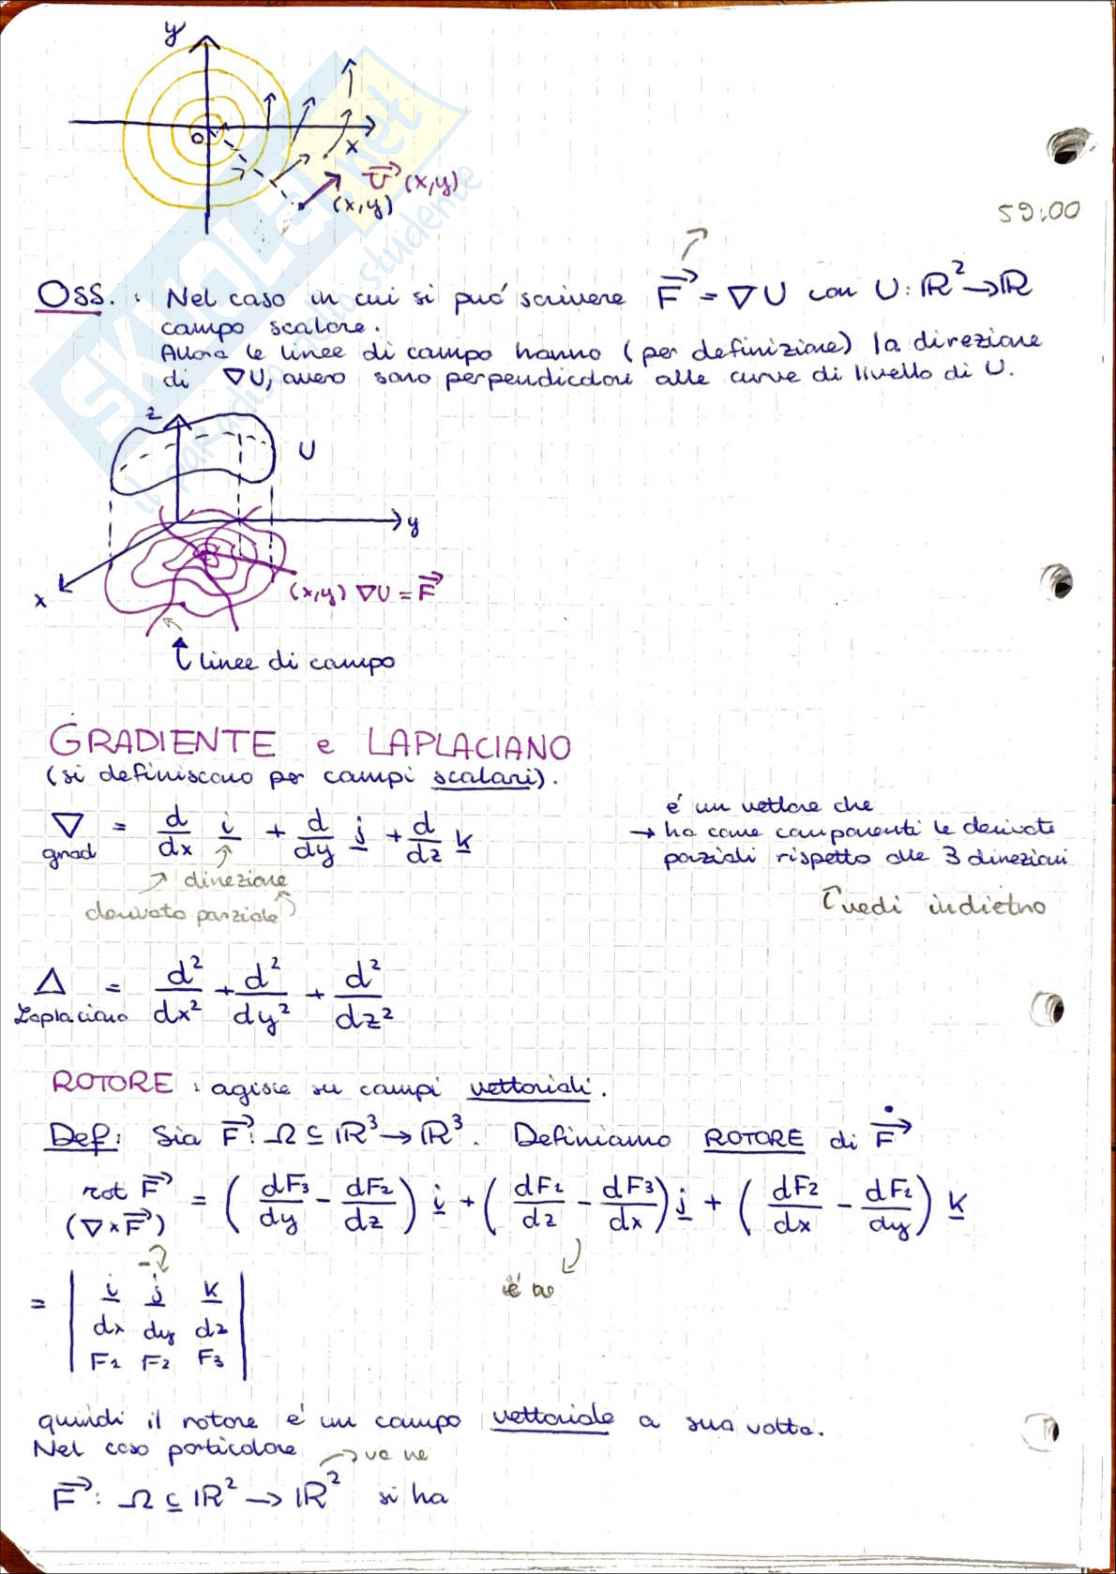 y
O
x
v⃗ (x,y)
(x,y)
59:00
Oss.: Nel caso in cui si puó scrivere F⃗ = ∇U con U: ℝ² → ℝ
campo scalare.
Allora le linee di campo hanno (per definizione) la direzione
di ∇U, ovvero sono perpendicolari alle curve di livello di U.
z
U
y
x
(x,y) ∇U = F⃗
linee di campo
GRADIENTE e LAPLACIANO
(si definiscono per campi scalari).
∇ = d/dx i + d/dy j + d/dz k
grad
direzione
derivata parziale
é un vettore che
→ ha come componenti le derivate
parziali rispetto alle 3 direzioni
vedi indietro
Δ = d²/dx² + d²/dy² + d²/dz²
Laplaciano
ROTORE: agisce su campi vettoriali.
Def: Sia F⃗: Ω ⊆ ℝ³ → ℝ³. Definiamo ROTORE di F⃗
rot F⃗ = (dF₃/dy - dF₂/dz) i + (dF₁/dz - dF₃/dx) j + (dF₂/dx - dF₁/dy) k
(∇×F⃗)
= | i j k |
dx dy dz
F₁ F₂ F₃
quindi il rotore é un campo vettoriale a sua volta.
Nel caso particolare
va ne
F⃗: Ω ⊆ ℝ² → ℝ² si ha
SKUOLA.net